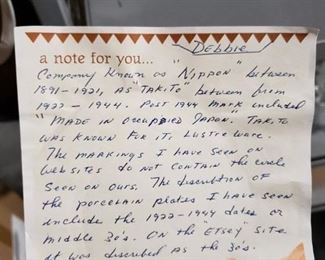 a note for you...
Debbie
Company Known as "Nippon" between
1891-1921, as "Takito" between from
1922-1944. Post 1944 mark included
"Made in Occupied Japan. Takito
was known for its lustre ware.
The markings I have seen on
websites do not contain the circle
seen on ours. The discription of
the porcelain plates I have seen
include the 1922-1944 dates or
middle 30's. On the "Etsey" site
it was described as the 30's.